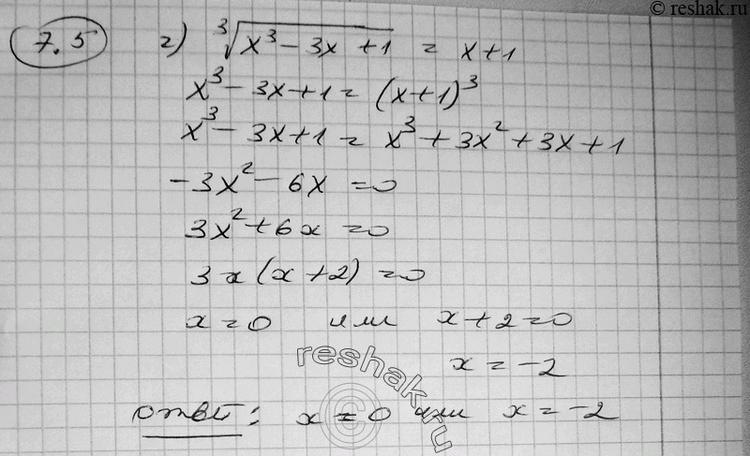 © reshak.ru
7.5 г) ∛(x³ - 3x + 1) = x + 1
x³ - 3x + 1 = (x + 1)³
x³ - 3x + 1 = x³ + 3x² + 3x + 1
-3x² - 6x = 0
3x² + 6x = 0
3x(x + 2) = 0
x = 0 или x + 2 = 0
x = -2
reshak.ru
©
Ответ: x = 0 или x = -2